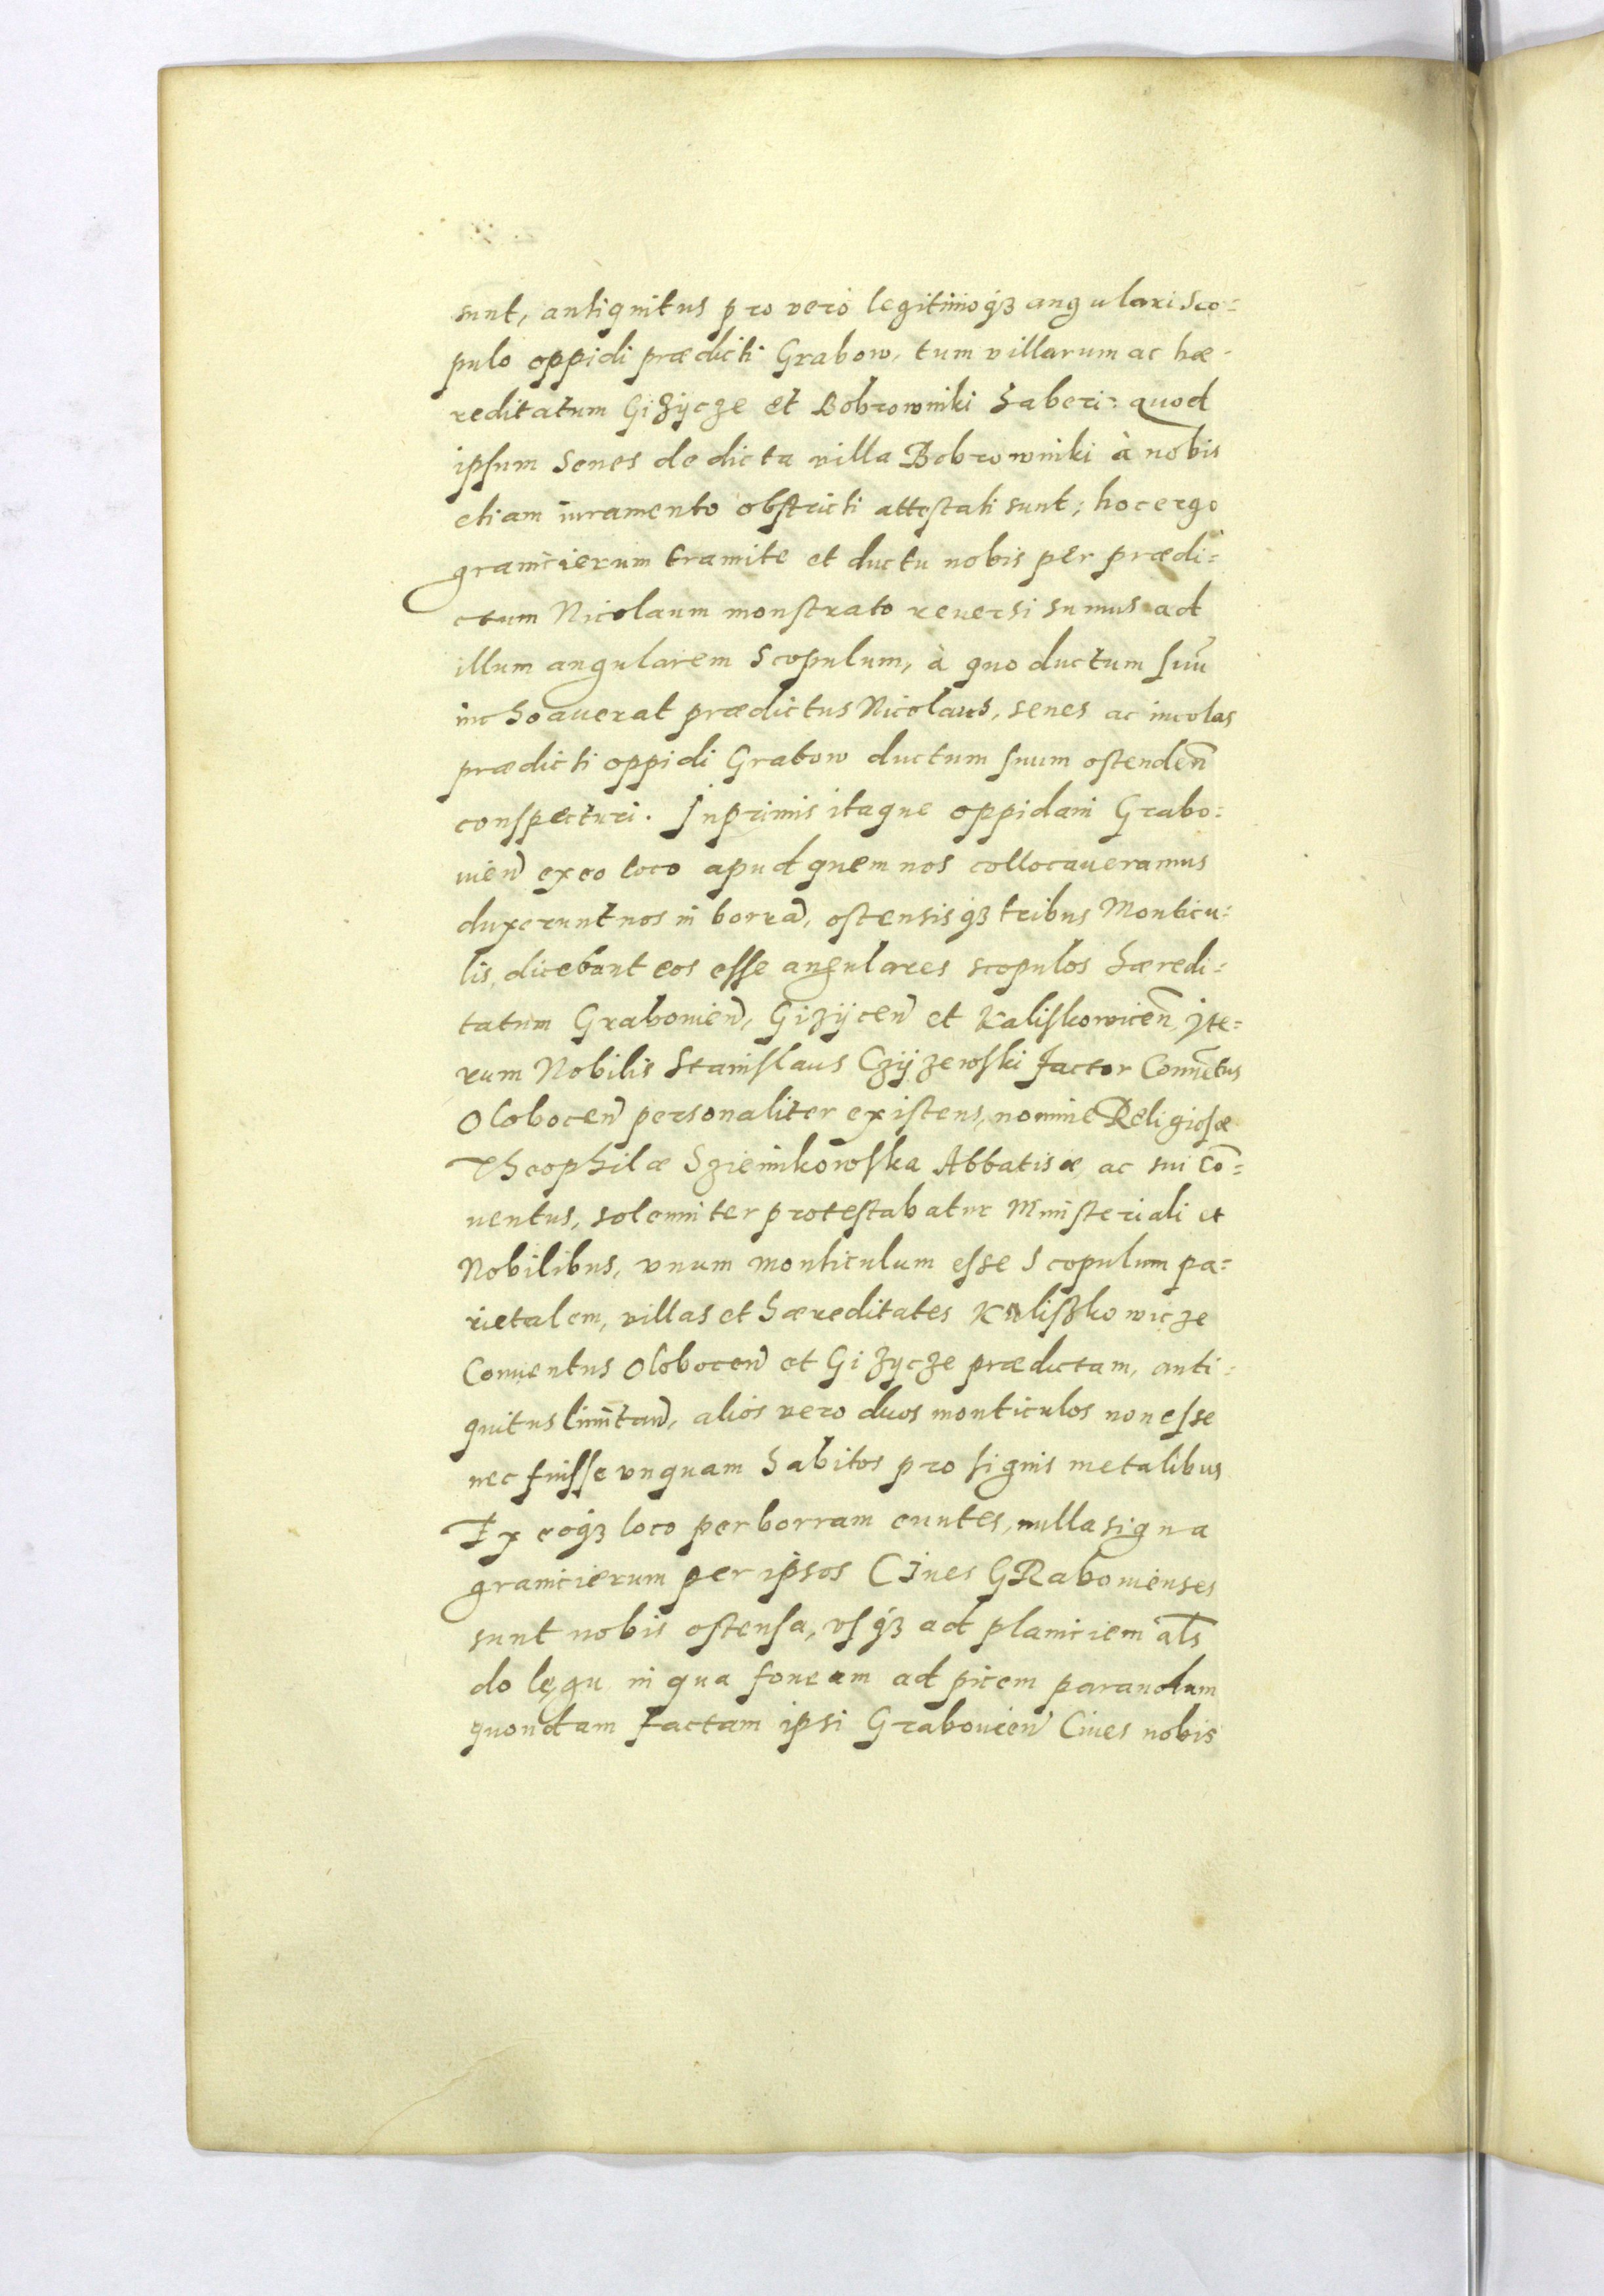 sunt, antiquitus pro vero legitimoq́ꝫ angulari Sco-
pulo oppidi prædicti Grabow, tum villarum ac hæ-
reditatum Giżÿcze et Bobrowniki haberi: quod
ipsum Senes de dicta villa Bobrowniki à nobis
etiam iuramento obstricti attestati sunt; hoc ergo
granicierum tramite et ductu nobis per prædi-
ctum Nicolaum monstrato reuersi sumus ad
illum angularem Scopulum, à quo ductum suũ
inchoauerat prædictus Nicolaus, senes ac incolas
prædicti oppidi Grabow ductum suum ostendeñ
conspecturi. Inprimis itaque oppidani Grabo-
uieñ ex eo loco apud quem nos collocaueramus
duxerunt nos in borrã, ostensisq́ꝫ tribus Monticu-
lis, dicebant eos esse angulares scopulos hæredi-
tatum Grabouieñ, Giżÿceñ et Kaliskowiceñ, Ite-
rum Nobilis Stanislaus Czÿżewski factor Conuẽtus
Oloboceñ personaliter existens, nomine Religiosæ
Theophilæ Szienikowska Abbatisæ, ac sui Cõ-
uentus, solenniter protestabatur Ministeriali et
Nobilibus, vnum monticulum esse Scopulum pa-
rietalem, villas et hæreditates Kaliszkowicze
Conuentus Oloboceñ et Giżycze prædictam, anti-
quitus limitañ, alios vero duos monticulos non esse
nec fuisse vnquam habitos pro signis metalibus
Ex eoq́ꝫ loco per borram euntes, nulla signa
granicierum per ipsos Ciues GRabouienses
sunt nobis ostensa, vsq́ꝫ ad planiciem al̃s
do lęgu in qua foueam ad picem parandum
quondam factam ipsi Grabouieñ Ciues nobis